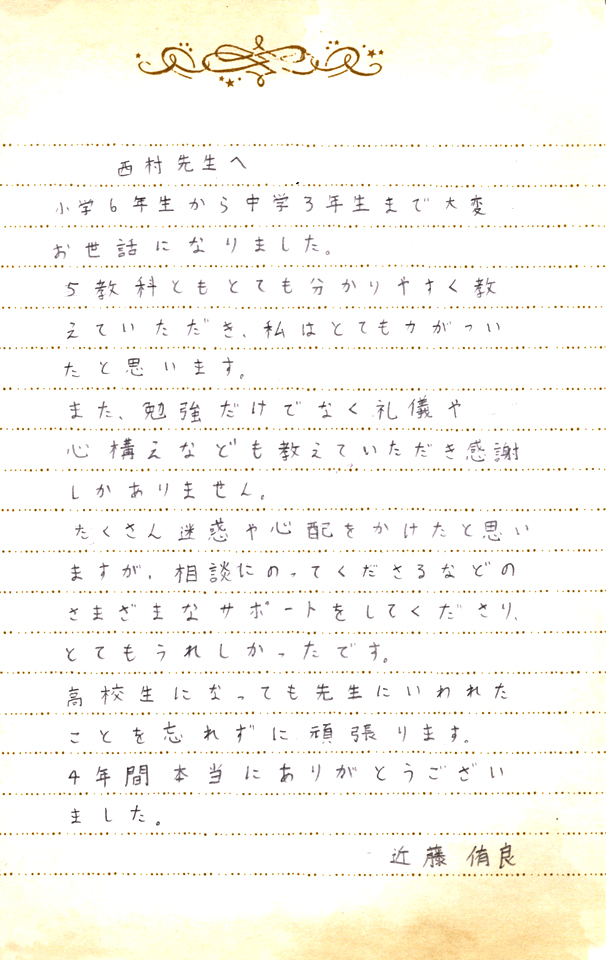 西村先生へ
小学6年生から中学3年生まで大変
お世話になりました。
5教科ともとても分かりやすく教
えていただき、私はとても力がつい
たと思います。
また、勉強だけでなく礼儀や
心構えなども教えていただき感謝
しかありません。
たくさん迷惑や心配をかけたと思い
ますが、相談にのってくださるなどの
さまざまなサポートをしてくださり、
とてもうれしかったです。
高校生になっても先生にいわれた
ことを忘れずに頑張ります。
4年間本当にありがとうござい
ました。
近藤 侑良